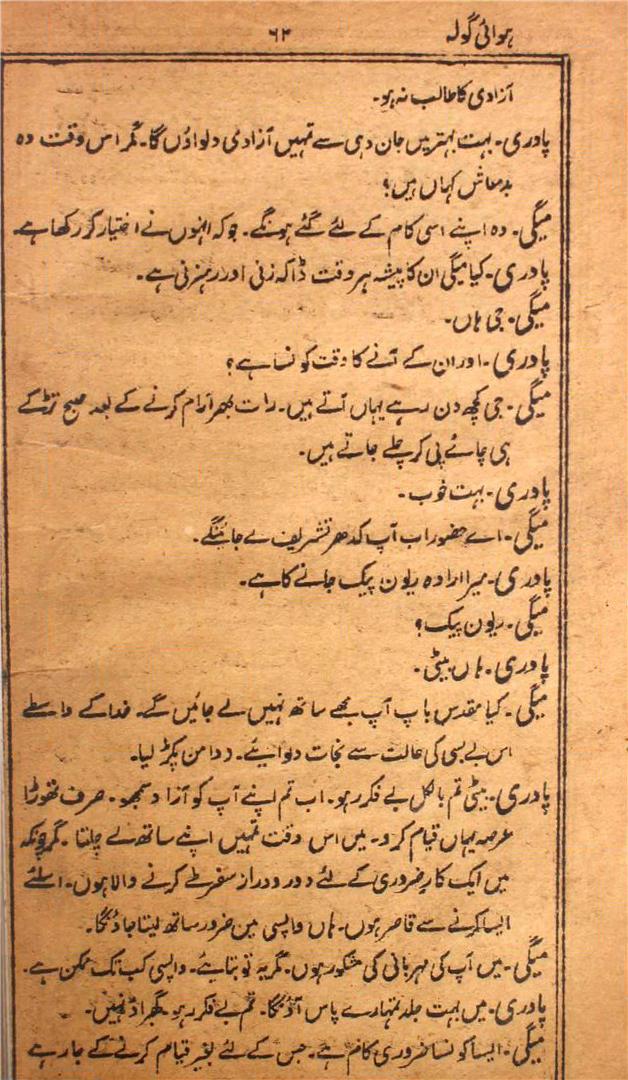 ہوائی گولہ ۶۴
آزادی کا طالب نہ ہو۔
پادری۔ بہت بہتر میں جان دہی سے تمہیں آزادی دلواؤں گا۔ مگر اس وقت وہ
بدمعاش کہاں ہیں؟
میگی۔ وہ اپنے اسی کام کے لئے گئے ہونگے۔ جو کہ انہوں نے اختیار کر رکھا ہے
پادری۔ کیا میگی ان کا پیشہ ہر وقت ڈاکہ زنی اور رہزنی ہے۔
میگی۔ جی ہاں۔
پادری۔ اور ان کے آنے کا وقت کونسا ہے؟
میگی۔ جی کچھ دن رہے یہاں آتے ہیں۔ رات بھر آرام کرنے کے بعد صبح تڑکے
ہی چائے پی کر چلے جاتے ہیں۔
پادری۔ بہت خوب۔
میگی۔ اے حضور اب آپ کدھر تشریف لے جائینگے۔
پادری۔ میرا ارادہ ریون پیک جانے کا ہے۔
میگی۔ ریون پیک؟
پادری۔ ہاں بیٹی۔
میگی۔ کیا مقدس باپ آپ مجھے ساتھ نہیں لے جائیں گے۔ خدا کے واسطے
اس بے بسی کی حالت سے نجات دلوایئے۔ دامن پکڑ لیا۔
پادری۔ بیٹی تم بالکل بے فکر رہو۔ اب تم اپنے آپ کو آزاد سمجھو۔ صرف تھوڑا
عرصہ یہاں قیام کرو۔ میں اس وقت تمہیں اپنے ساتھ لے چلتا۔ مگر چونکہ
میں ایک کار ضروری کے لئے دور و دراز سفر طے کرنے والا ہوں۔ اسلئے
ایسا کرنے سے قاصر ہوں۔ ہاں واپسی میں ضرور ساتھ لیتا جاؤنگا۔
میگی۔ میں آپ کی مہربانی کی مشکور ہوں۔ مگر یہ تو بتایئے۔ واپسی کب تک ممکن ہے۔
پادری۔ میں بہت جلد تمہارے پاس آؤنگا۔ تم بے فکر رہو۔ گھبراؤ نہیں۔
میگی۔ ایسا کونسا ضروری کام ہے۔ جس کے لئے بغیر قیام کرنے کے جا رہے